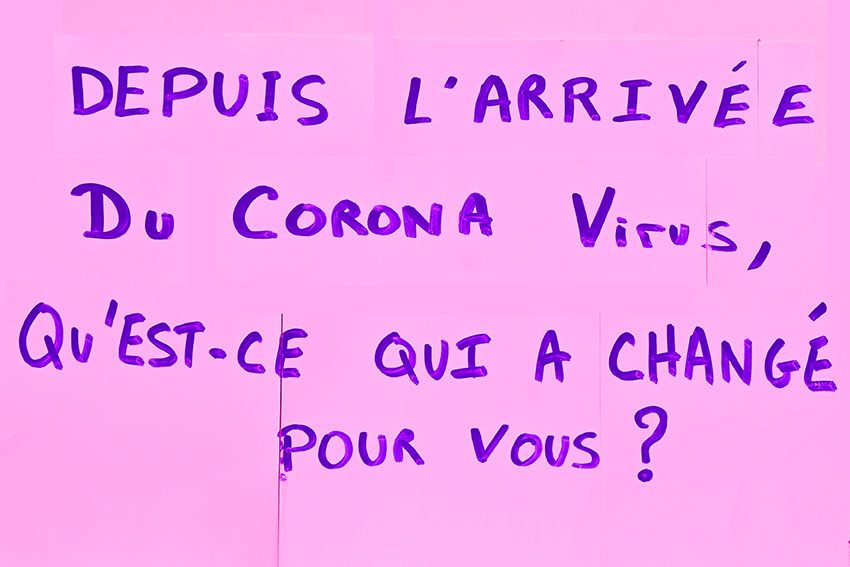 DEPUIS L'ARRIVÉE
DU CORONA VIRUS,
QU'EST-CE QUI A CHANGÉ
POUR VOUS ?